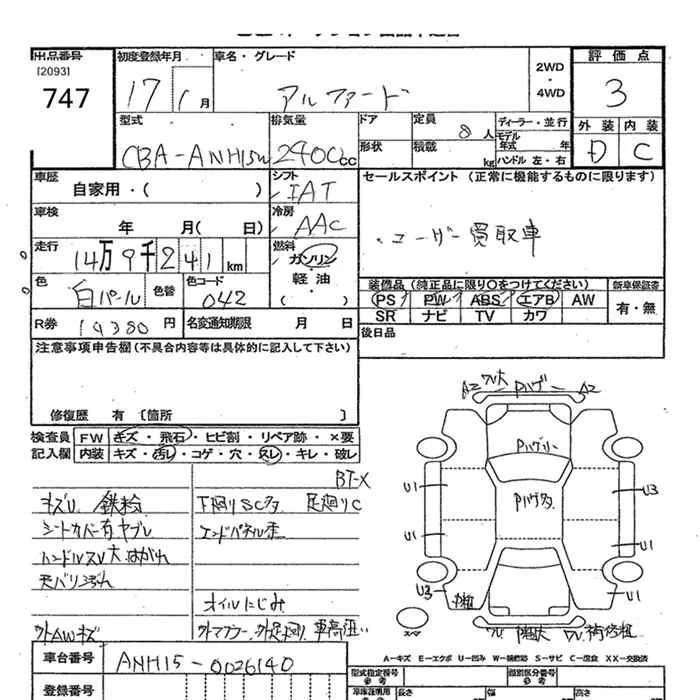 出品番号 初度登録年月 車名・グレード 評価点
[2093]
747 17 1月 アルファード 2WD・4WD 3
型式 排気量 ドア 定員 8人 ディーラー・並行 外装 内装
CBA-ANH15W 2400cc 形状 積載 kg モデル年式 年 ハンドル 左・右 D C
車歴 シフト セールスポイント (正常に機能するものに限ります)
自家用・( ) IAT
車検 冷房
年 月( 日) AAC ・ユーザー買取車
走行 14万9千241km 燃料 ガソリン 軽油 ( )
色 白パール 色替 色コード 042
装備品(純正品に限り○をつけてください) 新車保証書
PS PW ABS エアB AW 有・無
SR ナビ TV カワ
R券 19380円 名変通知期限 月 日
後日品
注意事項申告欄(不具合内容等は具体的に記入して下さい)
修復歴 有 [箇所 ]
検査員 FW キズ・飛石・ヒビ割・リペア跡・×要
記入欄 内装 キズ・汚レ・コゲ・穴・スレ・キレ・破レ
BT-X
キズU 鉄粉 下廻りSC多 足廻りC
シートカバー有ヤブレ エンドパネル歪
ハンドルスレ大はがれ
オイルにじみ
外AWキズ 外マフラー、外足廻り 車高短い
A2 A2
U1 U3
U1 U1
U3 U1
車台番号 ANH15-0026140
登録番号
A=キズ E=エクボ U=凹み W=補修跡 S=サビ C=腐食 XX=交換済
型式指定番号 参考 類別区分番号 参考
長さ 幅 高さ